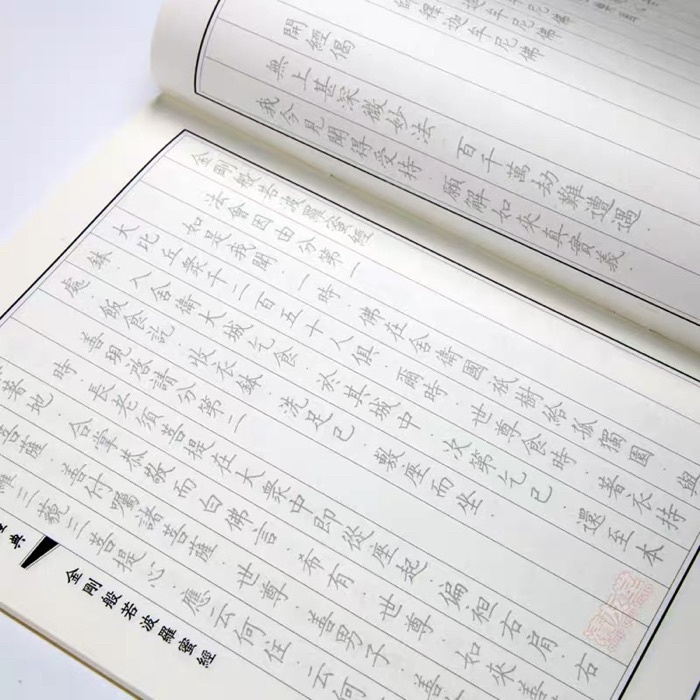 釋迦牟尼佛
釋迦牟尼佛
開經偈
無上甚深微妙法．百千萬劫難遭遇．
我今見聞得受持．願解如來真實義．
金剛般若波羅蜜經
法會因由分第一
如是我聞．一時．佛在舍衛國祇樹給孤獨園．與
大比丘衆千二百五十人俱．爾時．世尊食時．著衣持
鉢．入舍衛大城乞食．於其城中．次第乞已．還至本
處．飯食訖．收衣鉢．洗足已．敷座而坐．
善現啓請分第二
時．長老須菩提在大衆中即從座起．偏袒右肩．右
著地．合掌恭敬而白佛言．希有．世尊．如來善
菩薩．善付囑諸菩薩．世尊．善男子．善
羅三藐三菩提心．應云何住．云何
典
金剛般若波羅蜜經